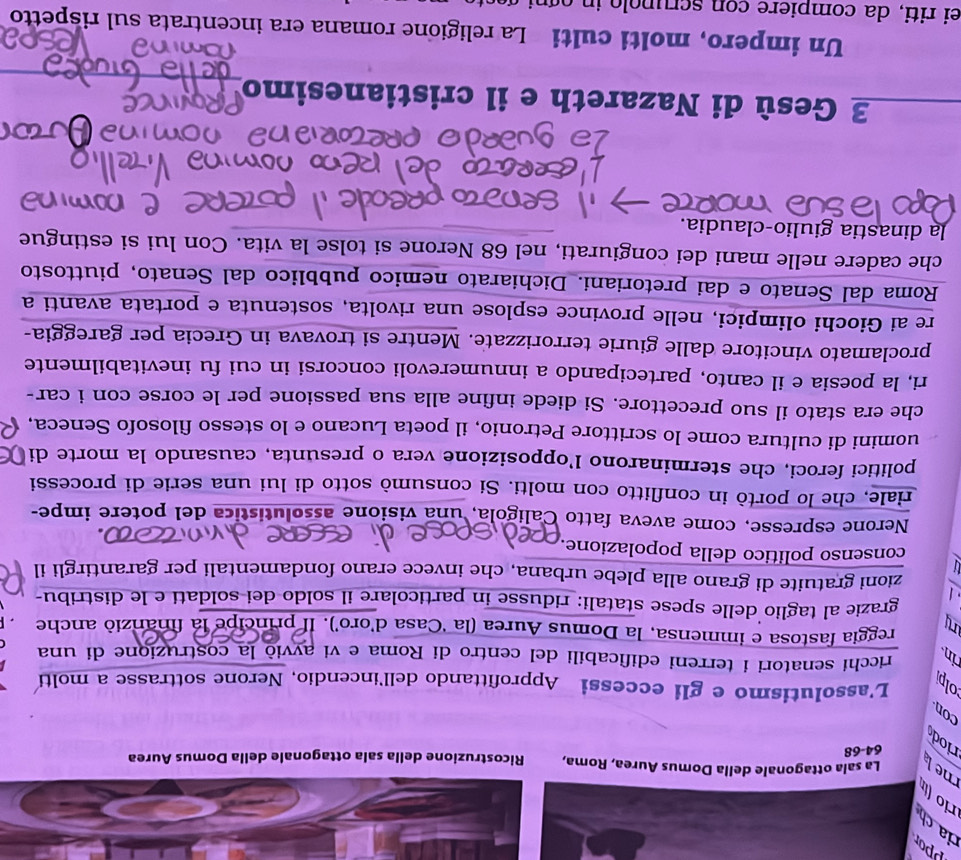 ppor-
ria che
ario (in
rne la
riodo
con-
colpi
rin-
La sala ottagonale della Domus Aurea, Roma,
64-68
Ricostruzione della sala ottagonale della Domus Aurea
L'assolutismo e gli eccessi Approfittando dell'incendio, Nerone sottrasse a molti
ricchi senatori i terreni edificabili del centro di Roma e vi avviò la costruzione di una
reggia fastosa e immensa, la Domus Aurea (la 'Casa d'oro'). Il principe la finanziò anche
grazie al taglio delle spese statali: ridusse in particolare il soldo dei soldati e le distribu-
zioni gratuite di grano alla plebe urbana, che invece erano fondamentali per garantirgli il
consenso politico della popolazione.
predispose di essere divinizzato.
Nerone espresse, come aveva fatto Caligola, una visione assolutistica del potere impe-
riale, che lo portò in conflitto con molti. Si consumò sotto di lui una serie di processi
politici feroci, che sterminarono l'opposizione vera o presunta, causando la morte di
uomini di cultura come lo scrittore Petronio, il poeta Lucano e lo stesso filosofo Seneca,
che era stato il suo precettore. Si diede infine alla sua passione per le corse con i car-
ri, la poesia e il canto, partecipando a innumerevoli concorsi in cui fu inevitabilmente
proclamato vincitore dalle giurie terrorizzate. Mentre si trovava in Grecia per gareggia-
re ai Giochi olimpici, nelle province esplose una rivolta, sostenuta e portata avanti a
Roma dal Senato e dai pretoriani. Dichiarato nemico pubblico dal Senato, piuttosto
che cadere nelle mani dei congiurati, nel 68 Nerone si tolse la vita. Con lui si estingue
la dinastia giulio-claudia.
Dopo la sua morte → il senato prende il potere e nomina
L'esercito del reno nomina Vitellio
La guardia pretoriana nomina
3 Gesù di Nazareth e il cristianesimo
Province
della Giudea
nomina Vespa
Un impero, molti culti La religione romana era incentrata sul rispetto
ei riti, da compiere con scrupolo in ogni gesto